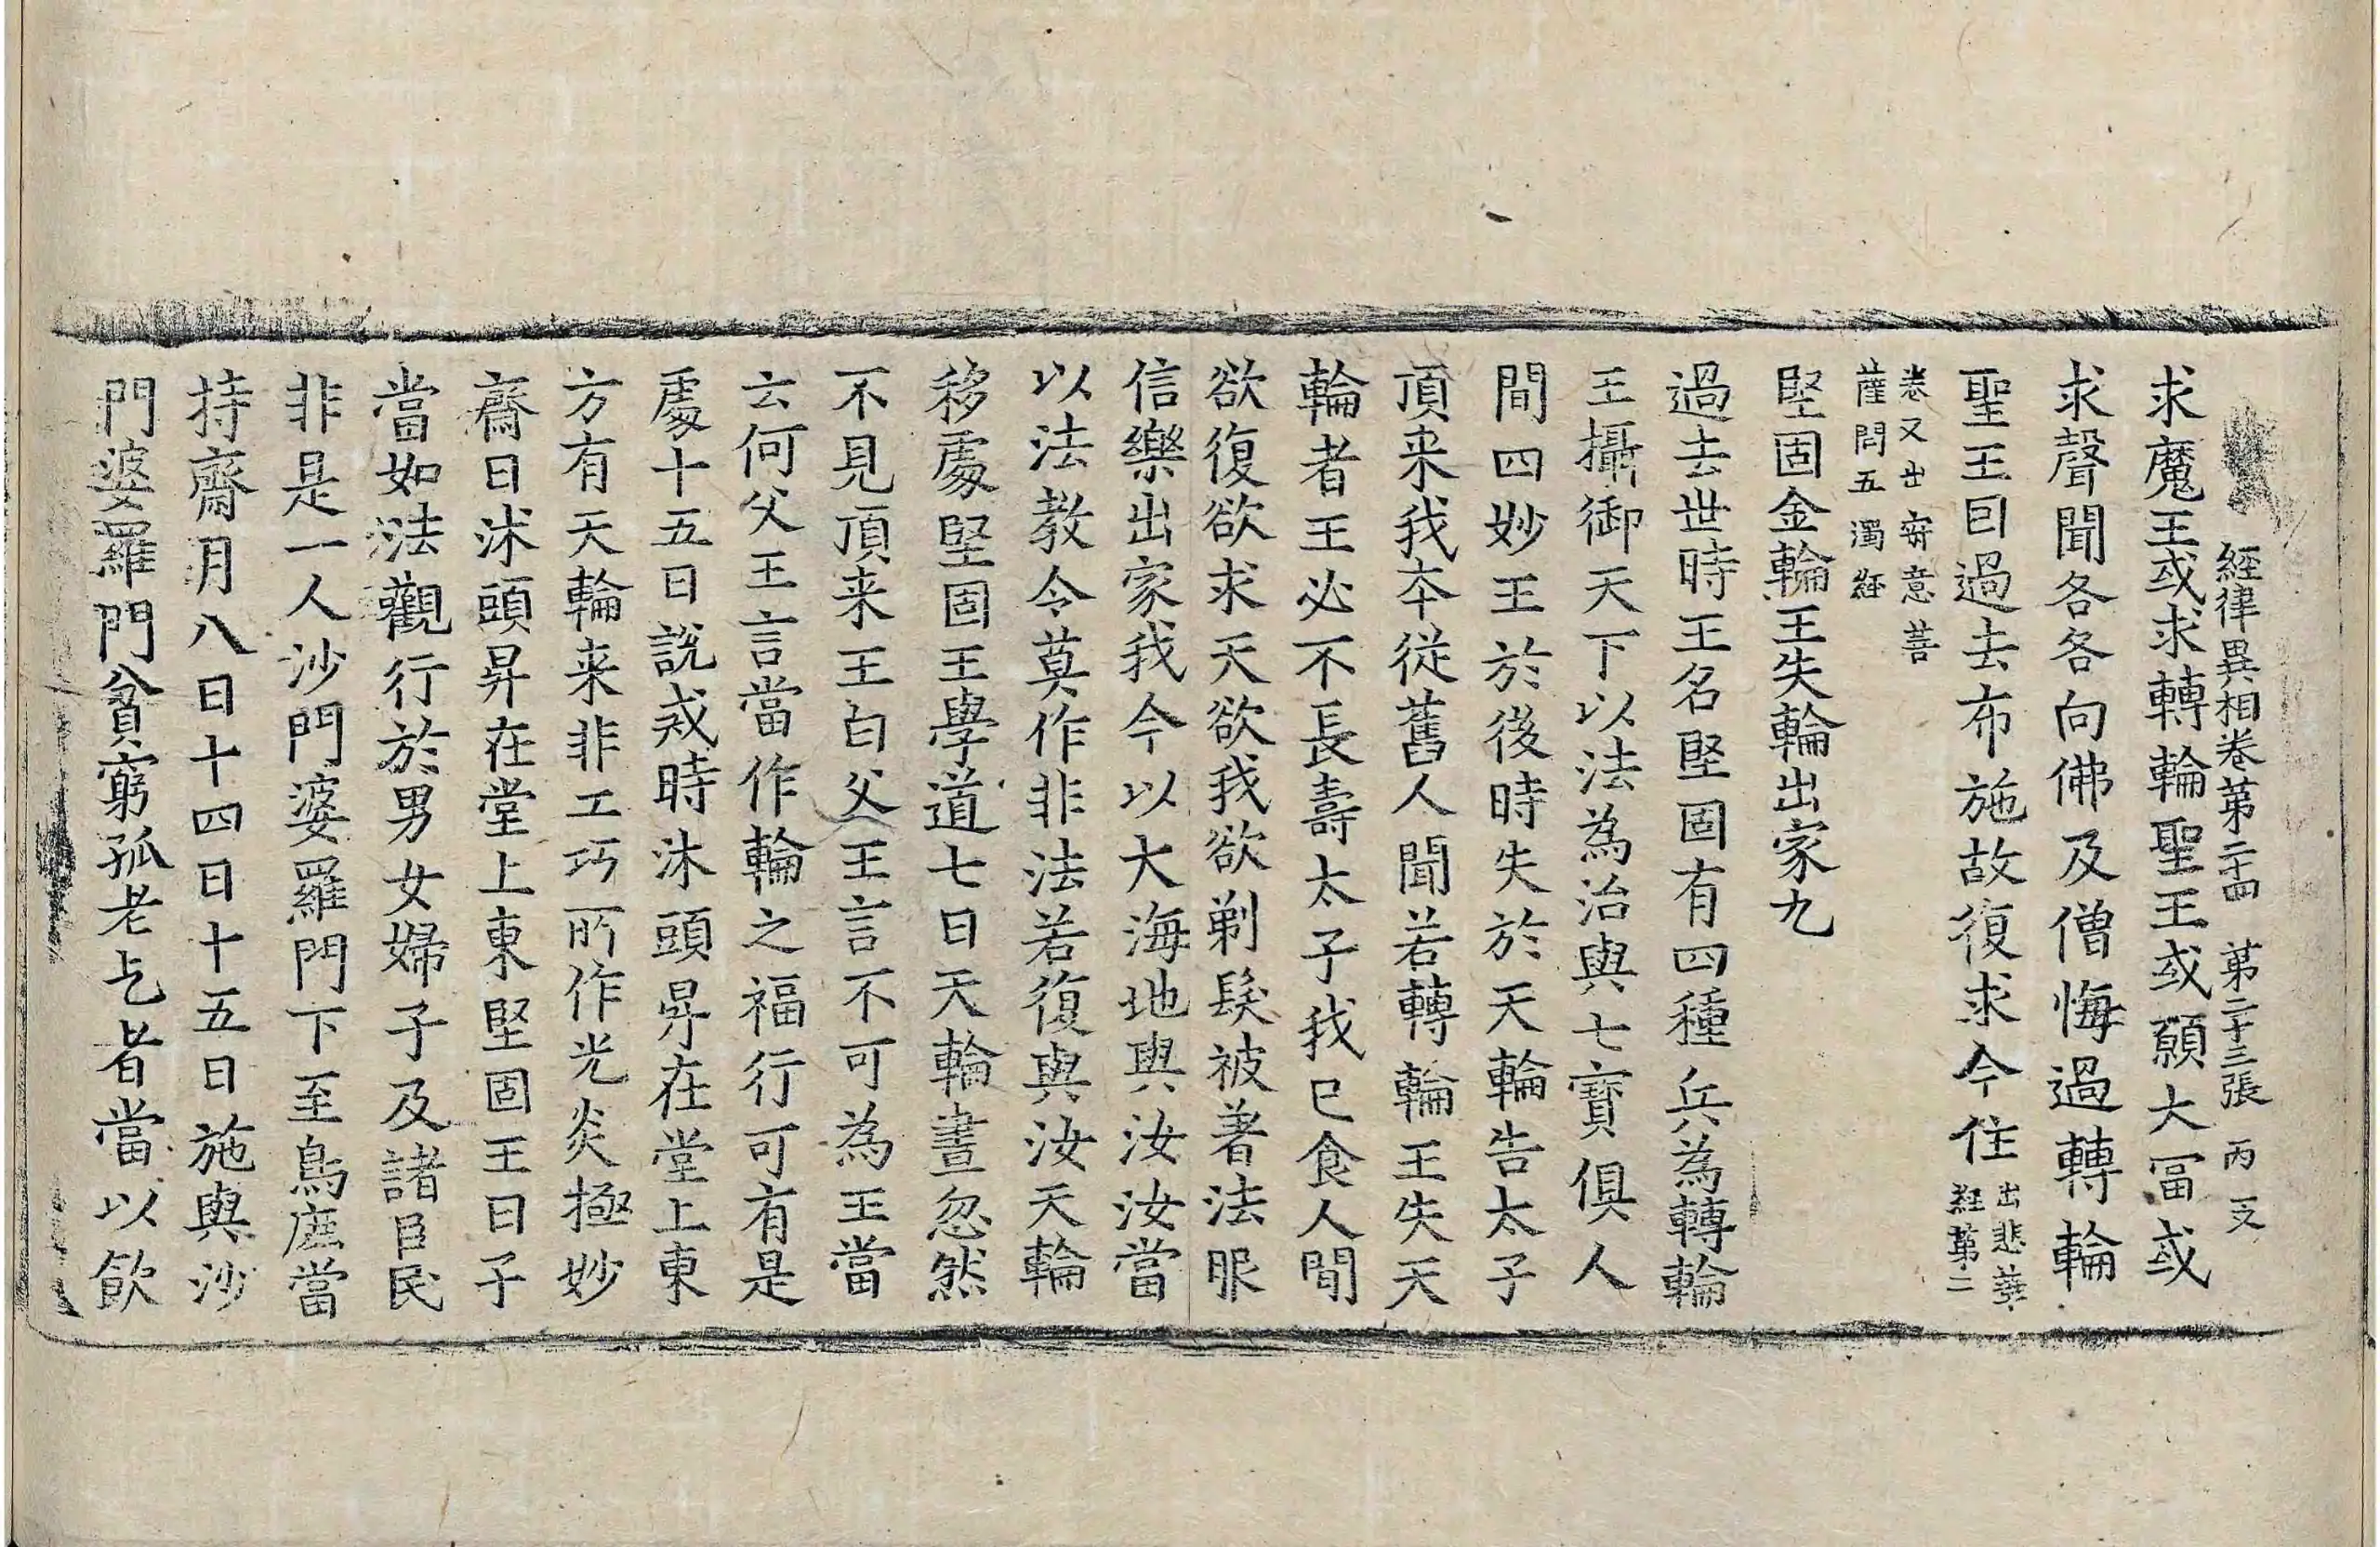 經律異相卷第二十四 第二十三張 丙 支
求魔王或求轉輪聖王或願大冨或
求聲聞各各向佛及僧悔過轉輪
聖王曰過去布施故復求今住出悲華經第二
卷又出寂意菩薩問五濁經
堅固金輪王失輪出家九
過去世時王名堅固有四種兵為轉輪
王攝御天下以法為治與七寶俱人
間四妙王於後時失於天輪告太子
頂来我夲從舊人聞若轉輪王失天
輪者王必不長壽太子我已食人間
欲復欲求天欲我欲剃髮被著法服
信樂出家我今以大海地與汝汝當
以法教令莫作非法若復與汝天輪
移處堅固王學道七日天輪晝忽然
不見頂来王白父王言不可為王當
云何父王言當作輪之福行可有是
處十五日說戒時沐頭昇在堂上東
方有天輪来非工巧所作光炎極妙
齋日沐頭昇在堂上東堅固王曰子
當如法觀行於男女婦子及諸臣民
非是一人沙門婆羅門下至鳥鹿當
持齋月八日十四日十五日施與沙
門婆羅門貧窮孤老乞者當以飲